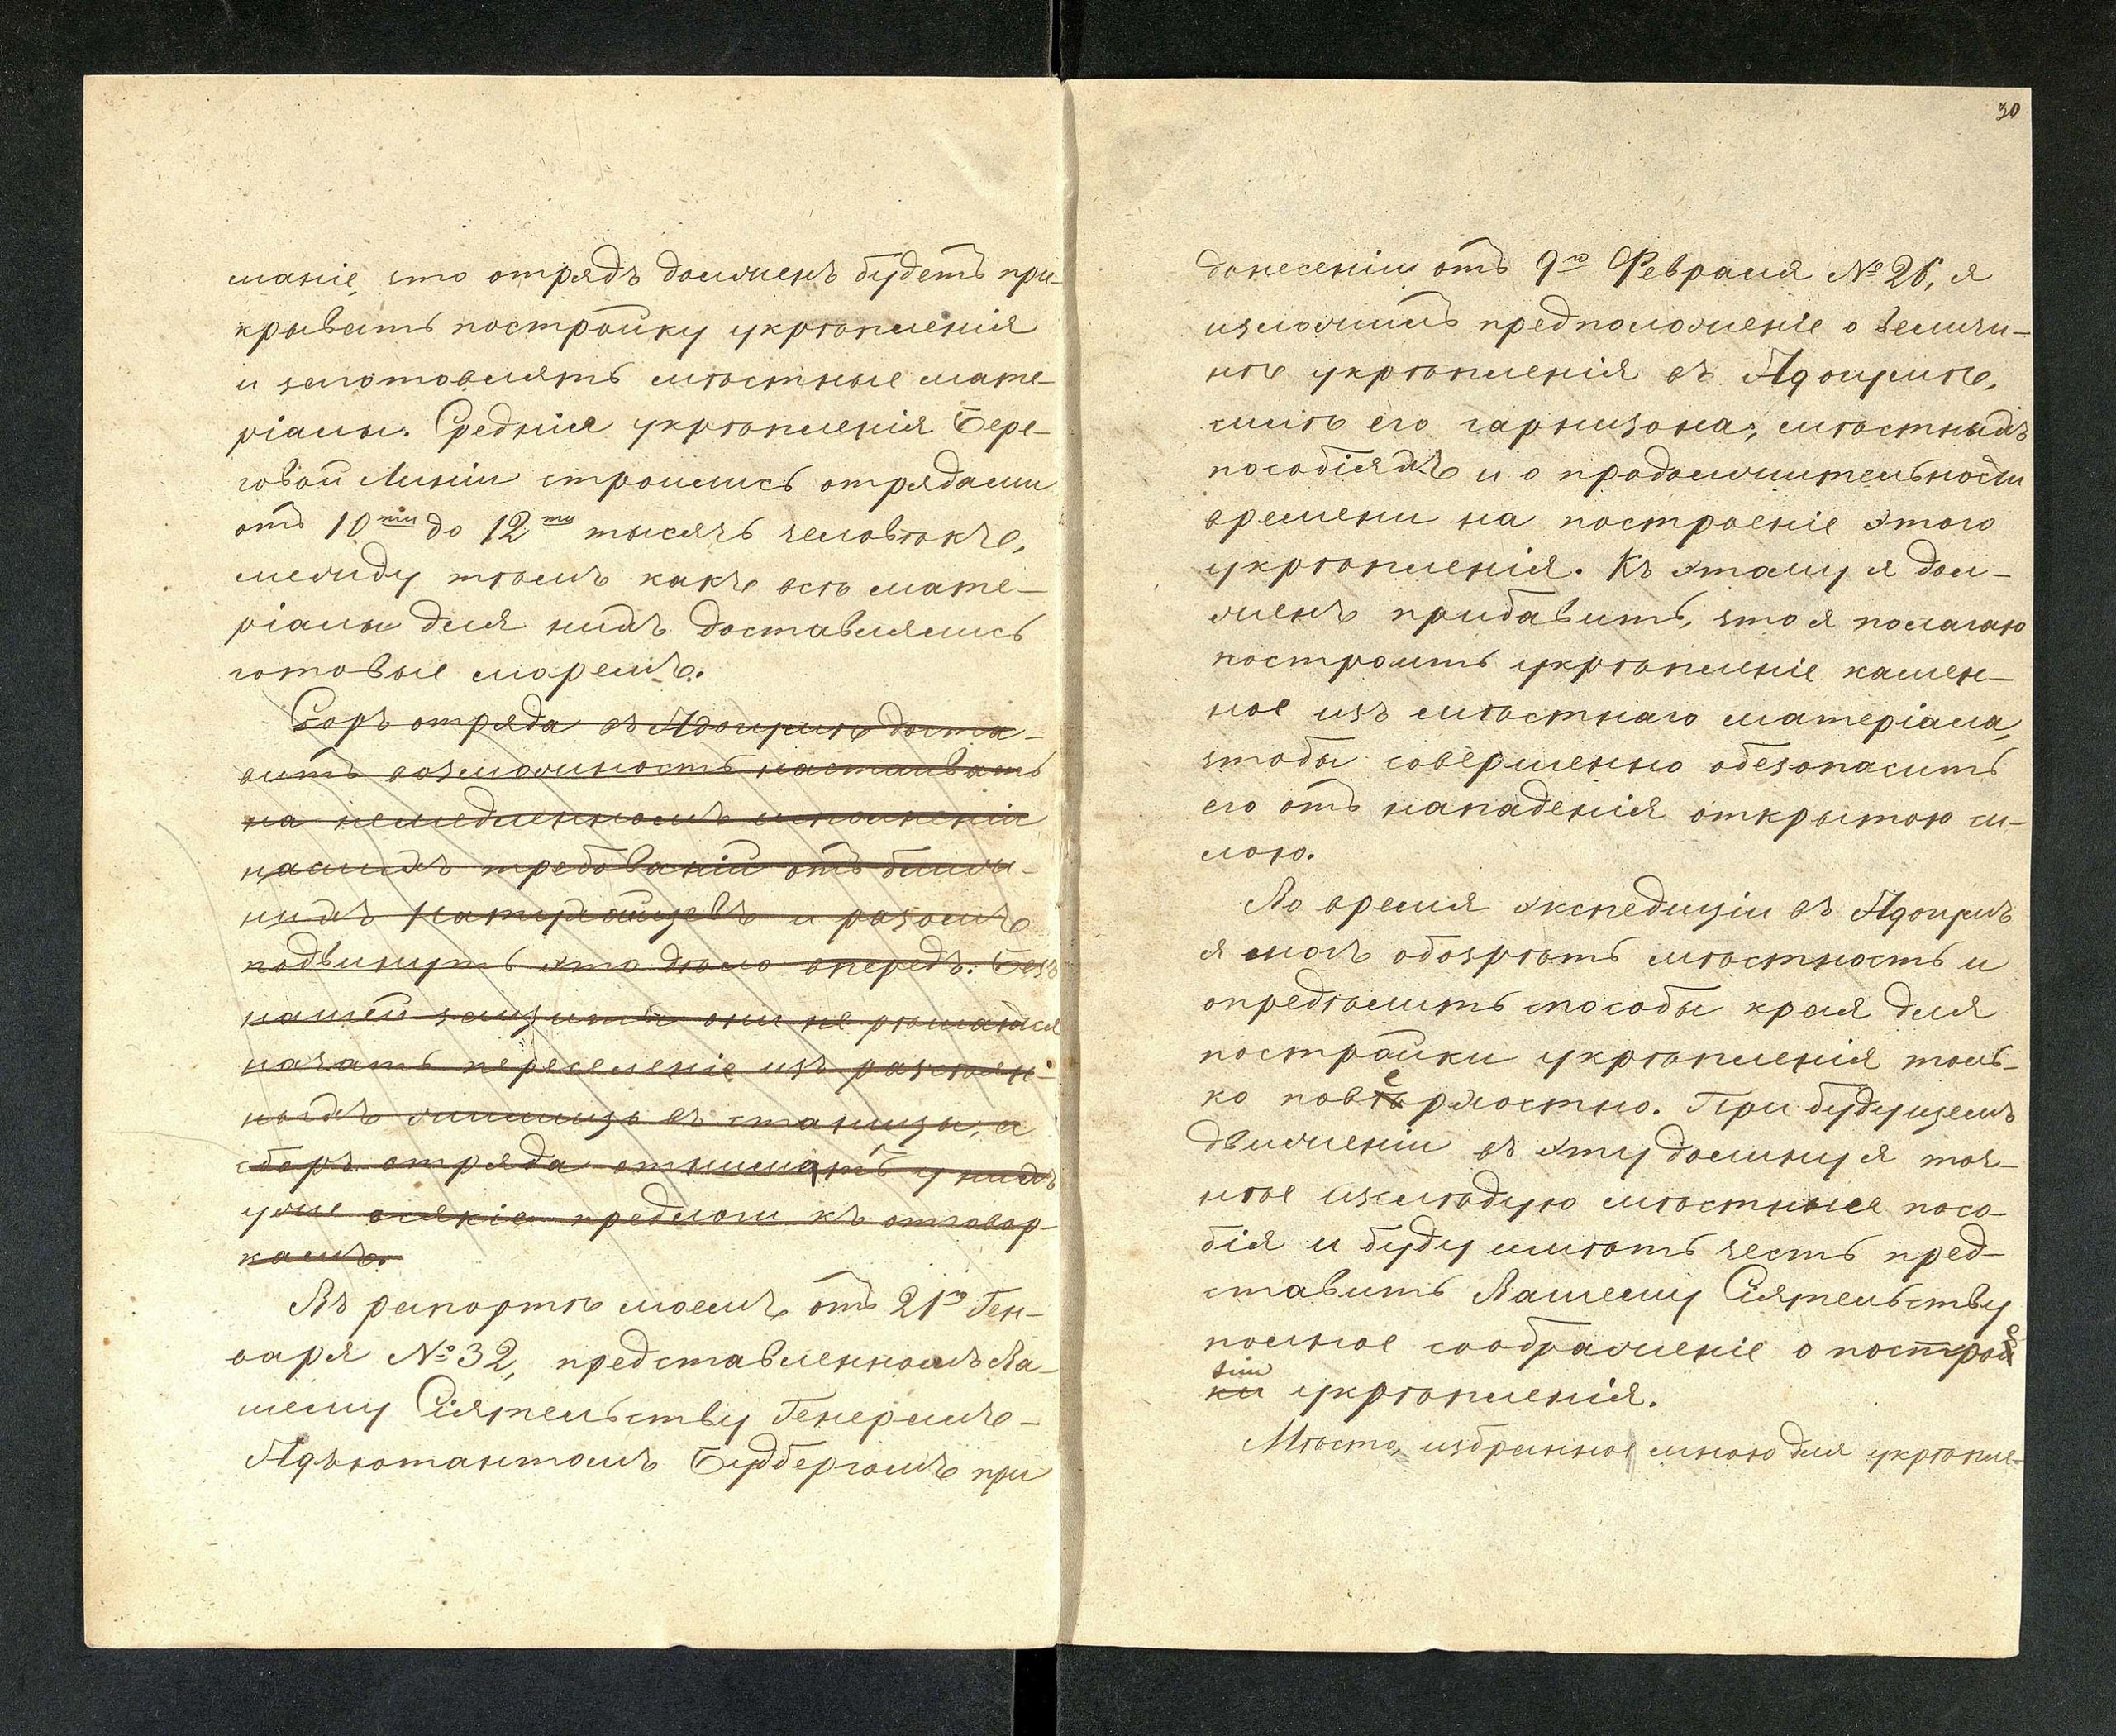 маніе, что отрядъ долженъ будетъ при-
крывать постройку укрѣпленія
и заготовлять мѣстные мате-
ріалы. Среднія укрѣпленія Бере-
говой Линіи строились отрядами
отъ 10ти до 12ти тысячъ человѣкъ,
между тѣмъ какъ всѣ мате-
ріалы для нихъ доставлялись
готовые моремъ.
Сборъ отряда въ Адагумѣ доста-
витъ возможность настаивать
на немедленномъ исполненіи
нашихъ требованій отъ ближ-
нихъ натухайцевъ и разомъ
подвинуть это дѣло впередъ. Безъ
нашей защиты они не рѣшатся
начать переселеніе изъ разсѣян-
ныхъ жилищъ въ станицы, а
сборъ отряда отниметъ у нихъ
уже всякіе предлоги къ отговор-
камъ.
Въ рапортѣ моемъ отъ 21го Ген-
варя № 32, представленномъ Ва-
шему Сіятельству Генералъ-
Адъютантомъ Будбергомъ при
30
донесеніи отъ 9го Февраля № 26, я
изложилъ предположеніе о величи-
нѣ укрѣпленія въ Адагумѣ,
силѣ его гарнизона, мѣстныхъ
пособіяхъ и о продолжительности
времени на построеніе этого
укрѣпленія. Къ этому я дол-
женъ прибавить, что я полагаю
построить укрѣпленіе камен-
ное изъ мѣстнаго матеріала,
чтобы совершенно обезопасить
его отъ нападенія открытою си-
лою.
Во время экспедиціи въ Адагумъ
я могъ обозрѣть мѣстность и
опредѣлить способы края для
постройки укрѣпленія толь-
ко поверхностно. При будущемъ
движеніи въ эту долину я точ-
нѣе изслѣдую мѣстныя посо-
бія и буду имѣть честь пред-
ставить Вашему Сіятельству
полное соображеніе о построе
ніи укрѣпленія.
Мѣсто, избранное мною для укрѣпле-